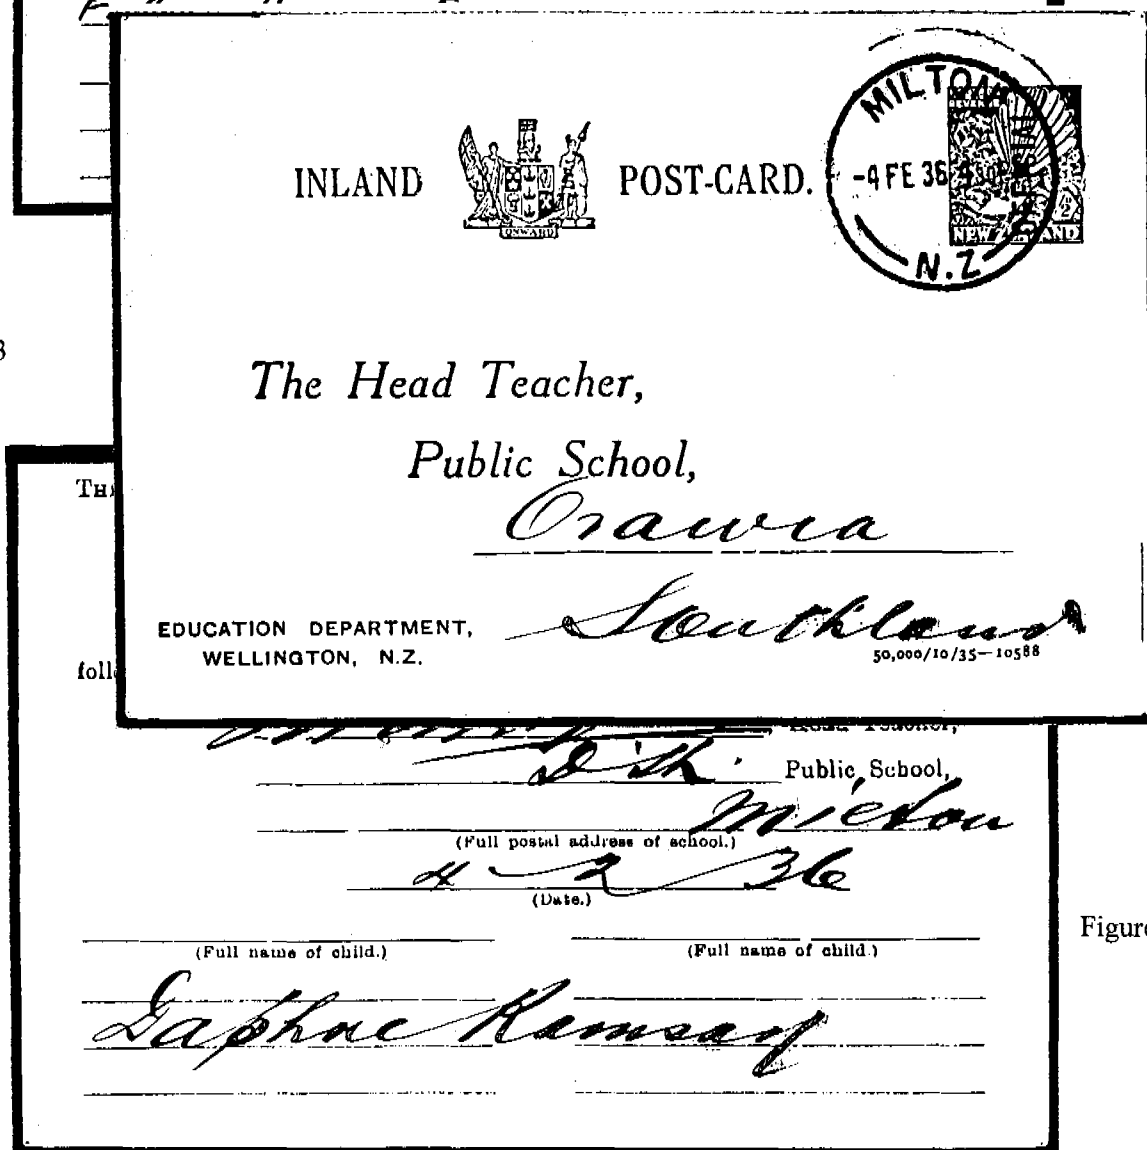 MILTON
INLAND POST-CARD.
-4 FE 36
OFFICIAL
ONWARD
NEW ZEALAND
N.Z
The Head Teacher,
Public School,
Orawia
Southland
EDUCATION DEPARTMENT,
WELLINGTON, N.Z.
50,000/10/35—10588
3
TH
foll
Head Teacher,
D. H. Public School,
Milton
(Full postal address of school.)
4 - 2 36
(Date.)
Figure
(Full name of child.) (Full name of child.)
Daphne Ramsay